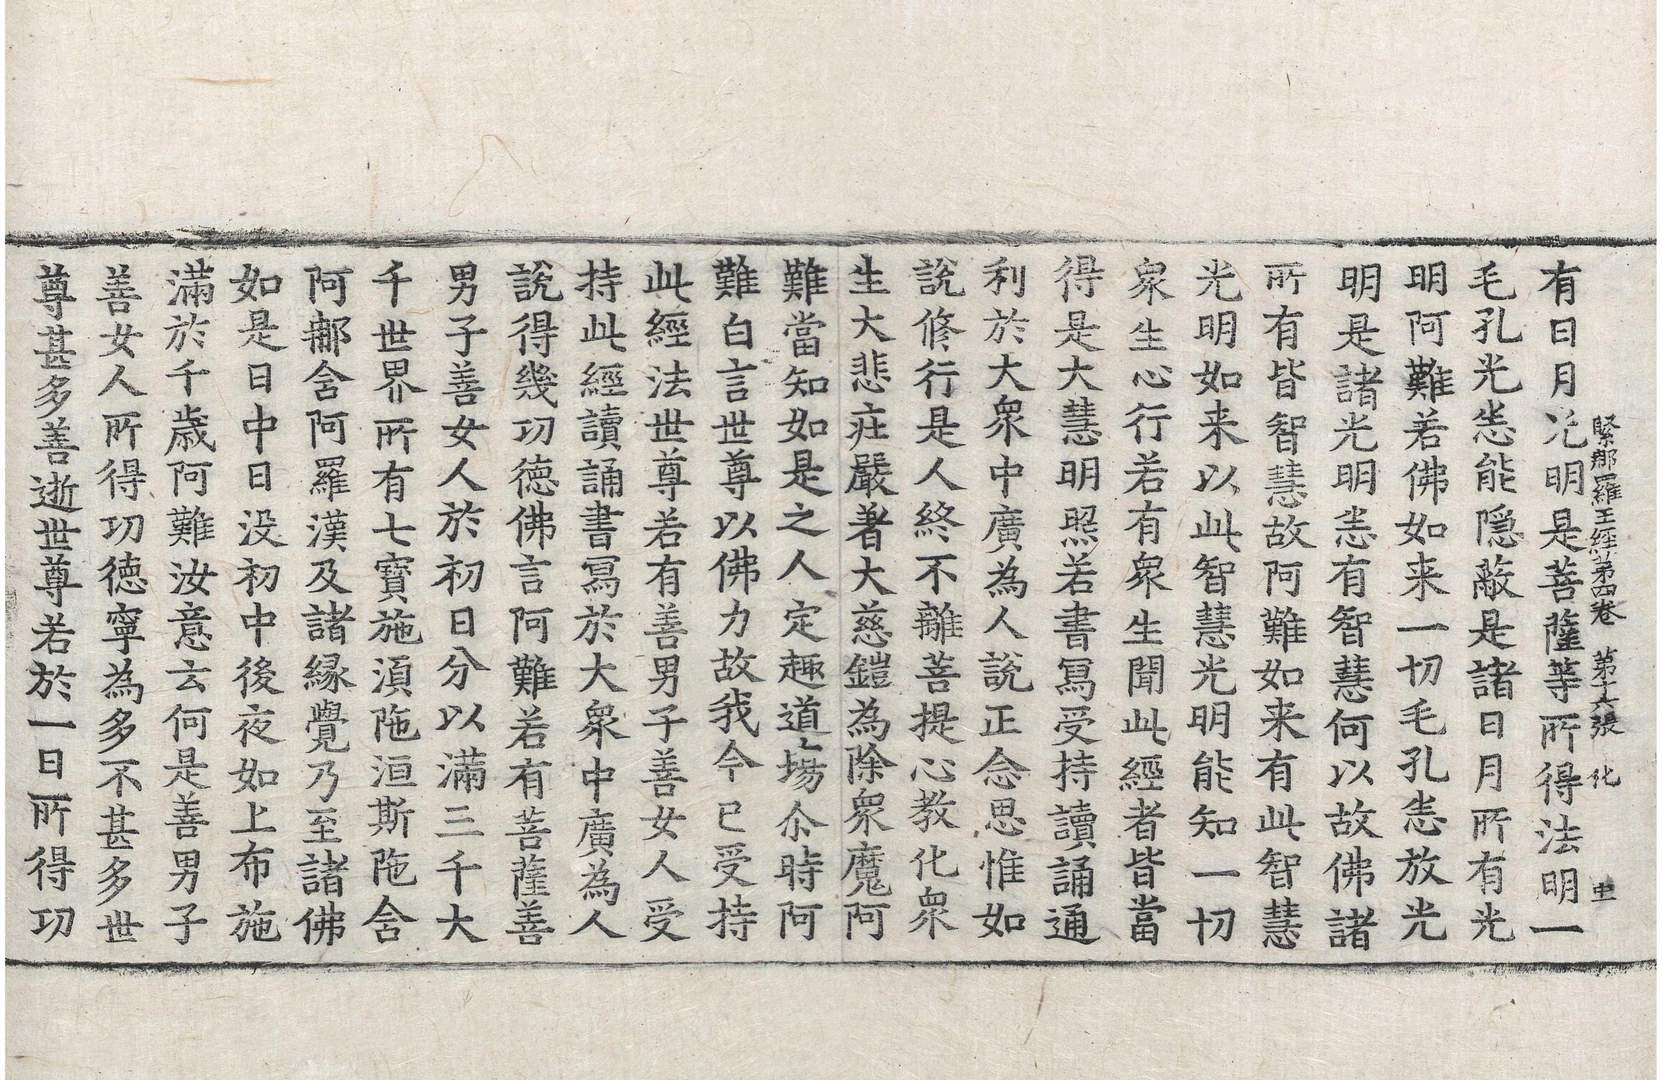 緊郍羅王經第四卷 第十六張 化 中
有日月光明是菩薩等所得法明一
毛孔光悉能隱蔽是諸日月所有光
明阿難若佛如来一切毛孔悉放光
明是諸光明悉有智慧何以故佛諸
所有皆智慧故阿難如来有此智慧
光明如来以此智慧光明能知一切
衆生心行若有衆生聞此經者皆當
得是大慧明照若書寫受持讀誦通
利於大衆中廣為人說正念思惟如
說修行是人終不離菩提心教化衆
生大悲莊嚴著大慈鎧為除衆魔阿
難當知如是之人定趣道場尒時阿
難白言世尊以佛力故我今已受持
此經法世尊若有善男子善女人受
持此經讀誦書寫於大衆中廣為人
說得幾功德佛言阿難若有菩薩善
男子善女人於初日分以滿三千大
千世界所有七寶施湏陁洹斯陁含
阿郍含阿羅漢及諸緣覺乃至諸佛
如是日中日没初中後夜如上布施
滿於千歲阿難汝意云何是善男子
善女人所得功德寧為多不甚多世
尊甚多善逝世尊若於一日所得功